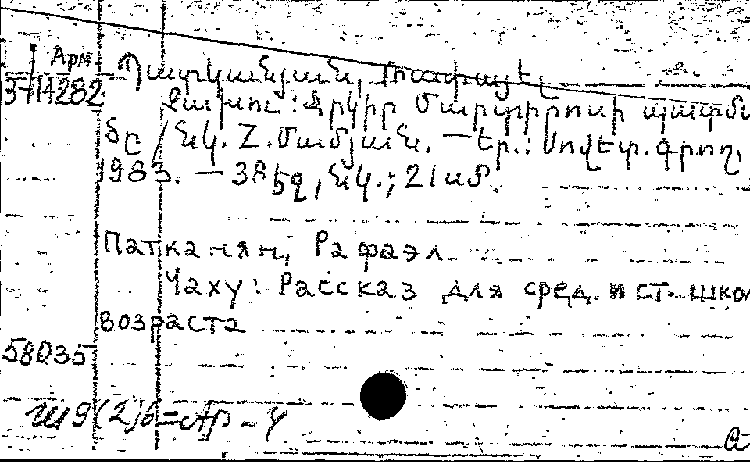 Арм
3-4282 Պատկանյան, Ռափայել
Չախու: Տրկիր Մարտիրոսի պատմ
ծը / Նկ. Հ. Մամյան. — Եր.: Սովետ. գրող,
1983. — 38 էջ, նկ.; 21 սմ.
Патканян, Рафаэл
Чаху: Рассказ для сред. и ст. школ
возраста
58035
Ш9(2)6=Ар-4
а